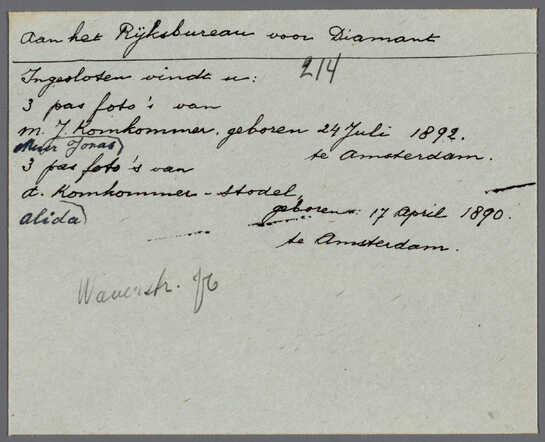 Aan het Rijksbureau voor Diamant
Ingesloten vindt u: 214
3 pas foto's van
M. J. Komkommer. geboren 24 Juli 1892.
Meier Jonas te Amsterdam.
3 pas foto's van
A. Komkommer - Stodel,
Alida geboren 17 April 1890.
te Amsterdam.
Waverstr.